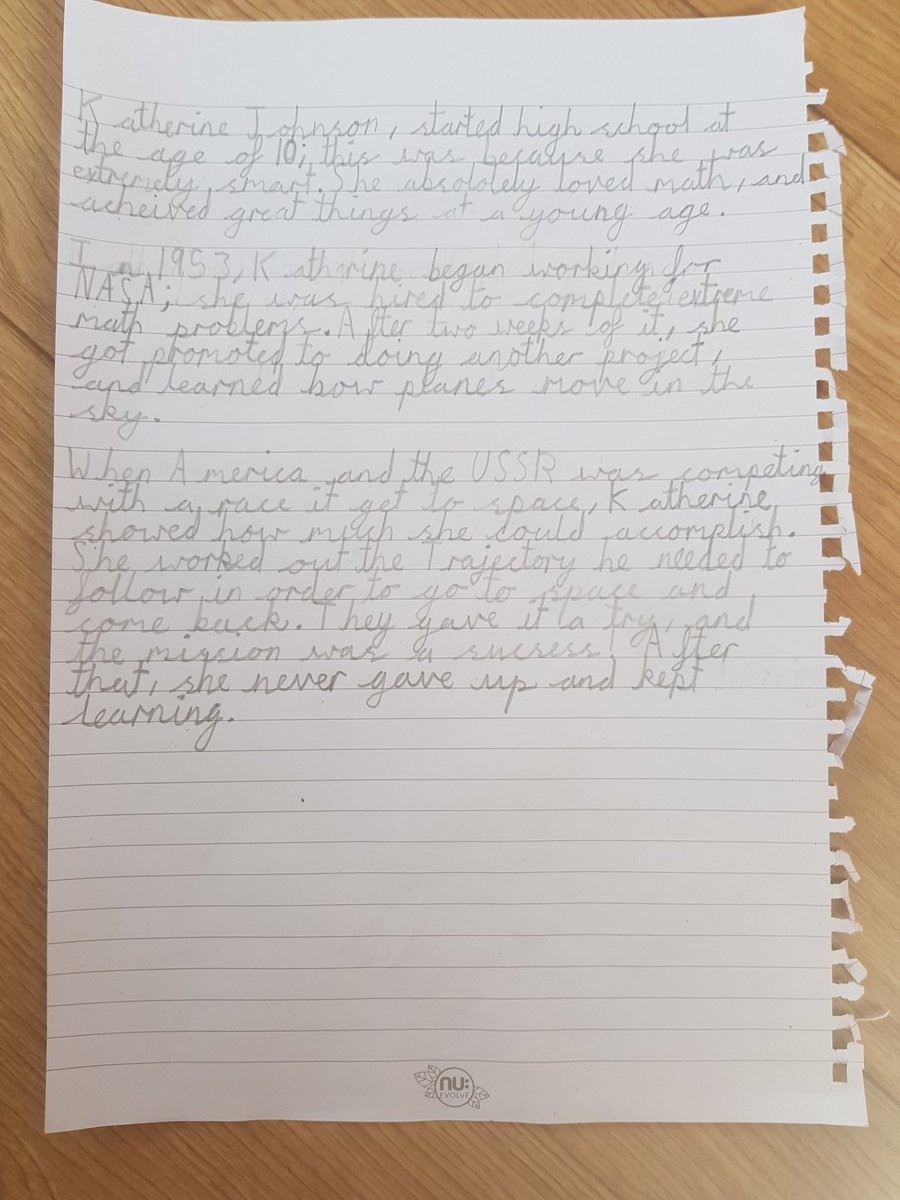 Katherine Johnson, started high school at
the age of 10; this was because she was
extremely smart. She absololely loved math, and
acheived great things at a young age.
In 1953, Katherine began working for
NASA; she was hired to complete extreme
math problems. After two weeks of it, she
got promoted to doing another project,
and learned how planes move in the
sky.
When America and the USSR was competing
with a race it get to space, Katherine
showed how much she could accomplish.
She worked out the Trajectory he needed to
follow in order to go to space and
come back. They gave it a try, and
the mission was a sucress! After
that, she never gave up and kept
learning.
nu:
EVOLVE